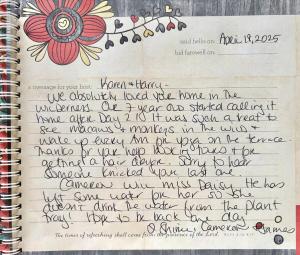 said hello on: April 19, 2025
bid farewell on:
a message for your host: Karen & Harry -
We absolutely loved your home in the
wilderness. Our 3 year old started calling it
home after Day 2. It was such a treat to
see macaws & monkeys in the wild &
wake up every AM for yoga on the terrace.
Thanks for your help booking tours & for
getting a hair dryer. Sorry to hear
someone knicked your last one.
Cameron will miss Daisy! He has
left some water for her so she
doesn't drink the water from the plant
tray! Hope to be back one day
Cameron & James
The times of refreshing shall come from the presence of the Lord.